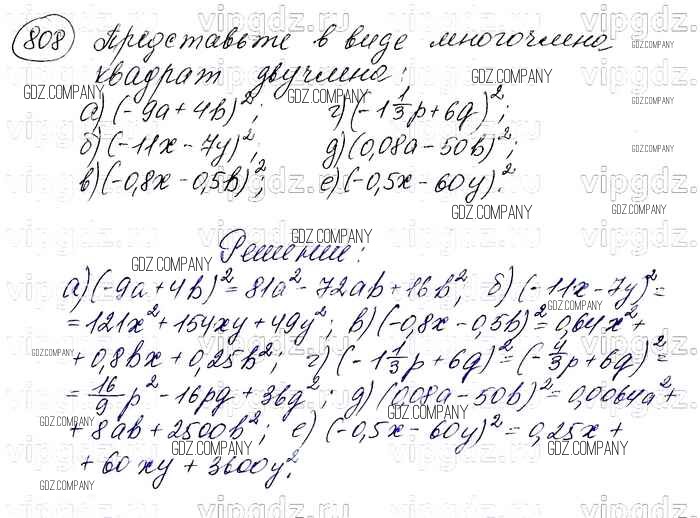 808 Представьте в виде многочлена
квадрат двучлена:
а) (-9a+4b)²; г) (-1 1/3 p+6q)²;
б) (-11x-7y)²; д) (0,08a-50b)²;
в) (-0,8x-0,5b)²; е) (-0,5x-60y)².
Решение:
а) (-9a+4b)²=81a²-72ab+16b²; б) (-11x-7y)²=
=121x²+154xy+49y²; в) (-0,8x-0,5b)²=0,64x²+
+0,8bx+0,25b²; г) (-1 1/3 p+6q)²=(-4/3 p+6q)²=
=16/9 p²-16pq+36q²; д) (0,08a-50b)²=0,0064a²+
+8ab+2500b²; е) (-0,5x-60y)²=0,25x+
+60xy+3600y².